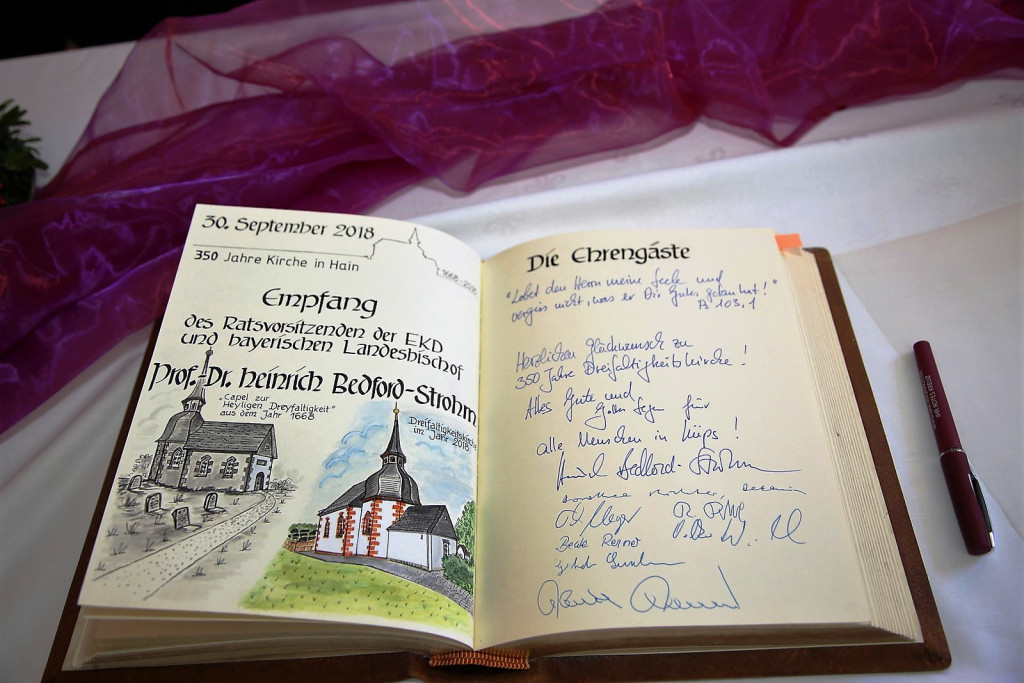 30. September 2018
350 Jahre Kirche in Hain
1668-2018
Empfang
des Ratsvorsitzenden der EKD
und bayerischen Landesbischof
Prof. Dr. Heinrich Bedford-Strohm
"Capel zur
Heyligen Dreyfaltigkeit"
aus dem Jahr 1668
Dreifaltigkeitskirche
im Jahr 2018
Die Ehrengäste
"Lobet den Herrn meine Seele und
vergiss nicht, was er Dir Gutes getan hat!"
Ps 103,1
Herzlichen Glückwunsch zu
350 Jahre Dreifaltigkeitskirche!
Alles Gute und
Gottes Segen für
alle Menschen in Küps!
Heinrich Bedford-Strohm
Dorothea Richter, Dekanin
Beate Renner